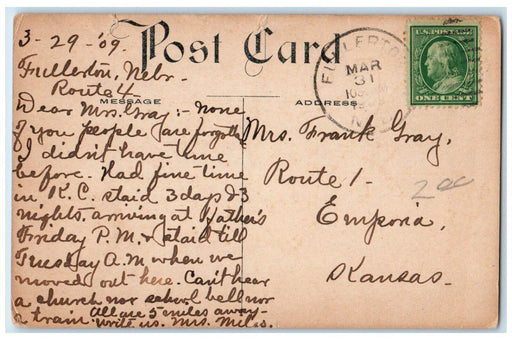 3-29-'09.
Post Card
Fullerton, Nebr.
Route 4
MESSAGE
ADDRESS
FULLERTON
MAR
31
U.S. POSTAGE
ONE CENT
Dear Mrs. Gray:- None
of you people are forgotten
I didn't have time
before. Had fine time
in K.C. staid 3 days & 3
nights, arriving at Father's
Friday P.M. & staid till
Tuesday A.M. when we
moved out here. Can't hear
a church nor school bell nor
a train. All are 5 miles away-
write us. Mrs. Miles.
Mrs. Frank Gray,
Route 1-
Emporia,
Kansas-